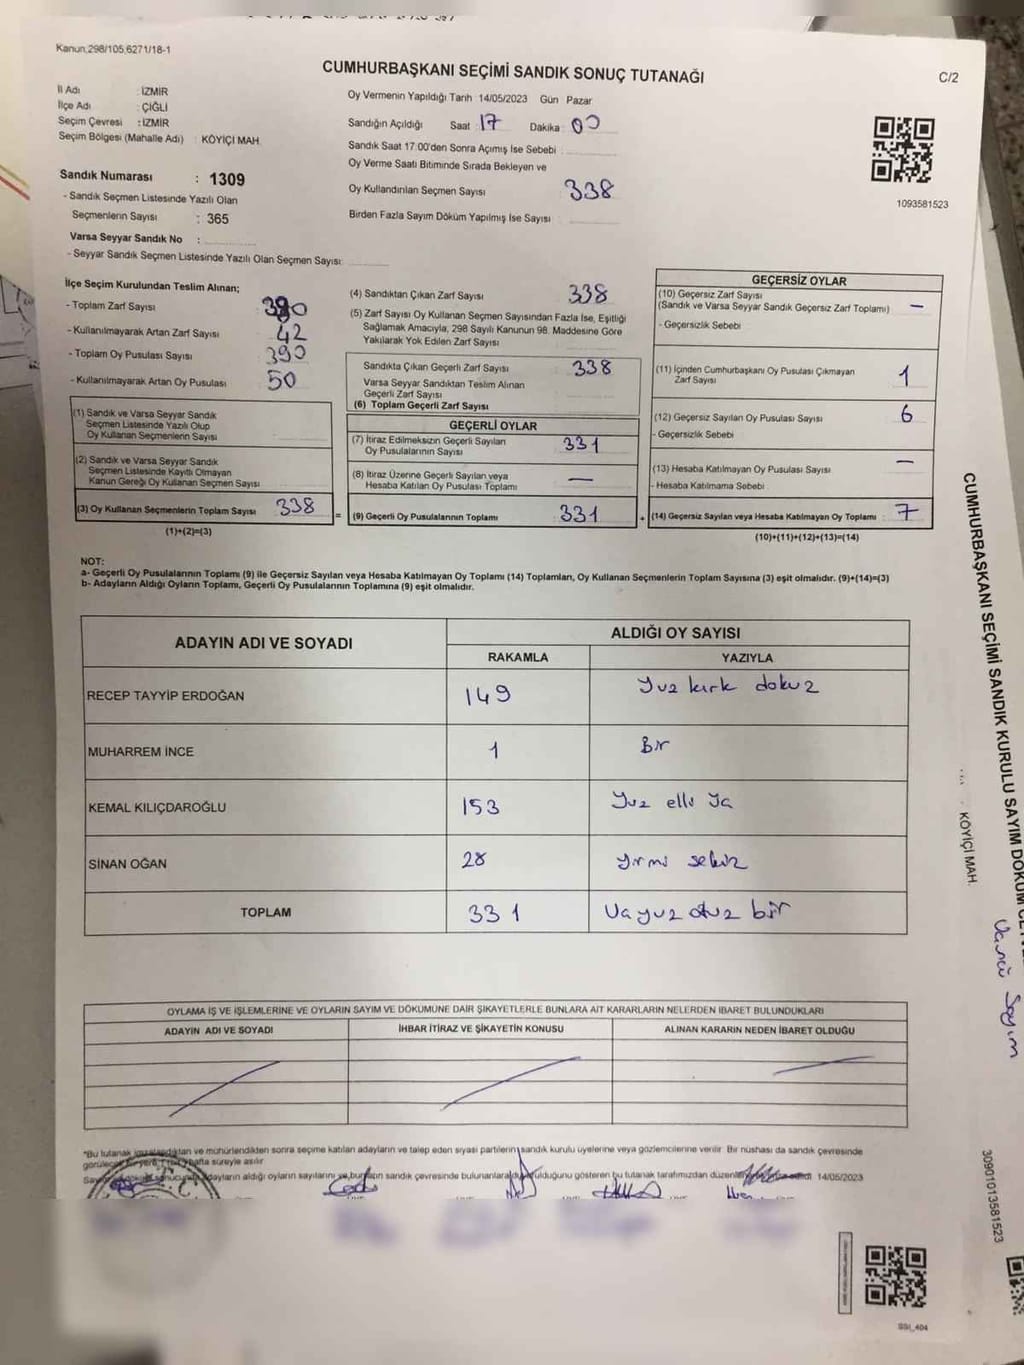 Kanun,298/105,6271/18-1
CUMHURBAŞKANI SEÇİMİ SANDIK SONUÇ TUTANAĞI
C/2
İl Adı : İZMİR
İlçe Adı : ÇİĞLİ
Seçim Çevresi : İZMİR
Seçim Bölgesi (Mahalle Adı) : KÖYİÇİ MAH.
Oy Vermenin Yapıldığı Tarih 14/05/2023 Gün Pazar
Sandığın Açıldığı Saat 17 Dakika 00
Sandık Saat 17:00'den Sonra Açımış İse Sebebi :
Oy Verme Saati Bitiminde Sırada Bekleyen ve
Oy Kullandırılan Seçmen Sayısı 338
Birden Fazla Sayım Döküm Yapılmış İse Sayısı :
1093581523
Sandık Numarası : 1309
- Sandık Seçmen Listesinde Yazılı Olan
Seçmenlerin Sayısı : 365
Varsa Seyyar Sandık No :
- Seyyar Sandık Seçmen Listesinde Yazılı Olan Seçmen Sayısı:
İlçe Seçim Kurulundan Teslim Alınan;
- Toplam Zarf Sayısı 380
- Kullanılmayarak Artan Zarf Sayısı 42
- Toplam Oy Pusulası Sayısı 390
- Kullanılmayarak Artan Oy Pusulası 50
(1) Sandık ve Varsa Seyyar Sandık
Seçmen Listesinde Yazılı Olup
Oy Kullanan Seçmenlerin Sayısı
(2) Sandık ve Varsa Seyyar Sandık
Seçmen Listesinde Kayıtlı Olmayan
Kanun Gereği Oy Kullanan Seçmen Sayısı
(3) Oy Kullanan Seçmenlerin Toplam Sayısı 338
(1)+(2)=(3)
(4) Sandıktan Çıkan Zarf Sayısı 338
(5) Zarf Sayısı Oy Kullanan Seçmen Sayısından Fazla İse, Eşitliği
Sağlamak Amacıyla, 298 Sayılı Kanunun 98. Maddesine Göre
Yakılarak Yok Edilen Zarf Sayısı
Sandıkta Çıkan Geçerli Zarf Sayısı 338
Varsa Seyyar Sandıktan Teslim Alınan
Geçerli Zarf Sayısı
(6) Toplam Geçerli Zarf Sayısı
GEÇERLİ OYLAR
(7) İtiraz Edilmeksizin Geçerli Sayılan
Oy Pusulalarının Sayısı 331
(8) İtiraz Üzerine Geçerli Sayılan veya
Hesaba Katılan Oy Pusulası Toplamı —
= (9) Geçerli Oy Pusulalarının Toplamı 331 +
GEÇERSİZ OYLAR
(10) Geçersiz Zarf Sayısı
(Sandık ve Varsa Seyyar Sandık Geçersiz Zarf Toplamı) —
- Geçersizlik Sebebi
(11) İçinden Cumhurbaşkanı Oy Pusulası Çıkmayan
Zarf Sayısı 1
(12) Geçersiz Sayılan Oy Pusulası Sayısı 6
- Geçersizlik Sebebi
(13) Hesaba Katılmayan Oy Pusulası Sayısı —
- Hesaba Katılmama Sebebi
(14) Geçersiz Sayılan veya Hesaba Katılmayan Oy Toplamı : 7
(10)+(11)+(12)+(13)=(14)
NOT:
a- Geçerli Oy Pusulalarının Toplamı (9) ile Geçersiz Sayılan veya Hesaba Katılmayan Oy Toplamı (14) Toplamları, Oy Kullanan Seçmenlerin Toplam Sayısına (3) eşit olmalıdır. (9)+(14)=(3)
b- Adayların Aldığı Oyların Toplamı, Geçerli Oy Pusulalarının Toplamına (9) eşit olmalıdır.
ADAYIN ADI VE SOYADI
ALDIĞI OY SAYISI
RAKAMLA YAZIYLA
RECEP TAYYİP ERDOĞAN 149 Yuz kırk dokuz
MUHARREM İNCE 1 Bir
KEMAL KILIÇDAROĞLU 153 Yuz elli
SİNAN OĞAN 28 yirmi sekiz
TOPLAM 331 otuz bir
OYLAMA İŞ VE İŞLEMLERİNE VE OYLARIN SAYIM VE DÖKÜMÜNE DAİR ŞİKAYETLERLE BUNLARA AİT KARARLARIN NELERDEN İBARET BULUNDUKLARI
ADAYIN ADI VE SOYADI İHBAR İTİRAZ VE ŞİKAYETİN KONUSU ALINAN KARARIN NEDEN İBARET OLDUĞU
*Bu tutanak imzalandıktan ve mühürlendikten sonra seçime katılan adayların ve talep eden siyasi partilerin sandık kurulu üyelerine veya gözlemcilerine verilir. Bir nüshası da sandık çevresinde
hafta süreyle asılır
adayların aldığı oyların sayılarını ve bunların sandık çevresinde bulunanlara olduğunu gösteren bu tutanak tarafımızdan 14/05/2023
SSI_404
CUMHURBAŞKANI SEÇİMİ SANDIK KURULU SAYIM DÖKÜM
KÖYİÇİ MAH.
Sayım
30901013581523